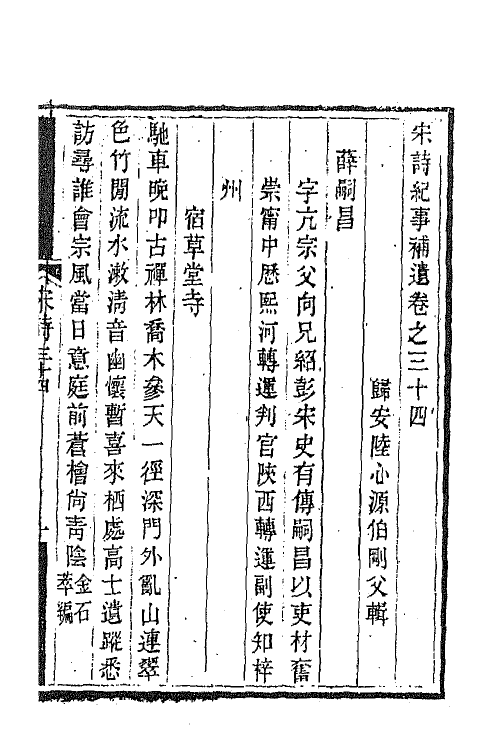 宋詩紀事補遺卷之三十四
歸安陸心源伯剛父輯
薛嗣昌
字亢宗父向兄紹彭宋史有傳嗣昌以吏材奮
崇甯中歷熙河轉運判官陝西轉運副使知梓
州
宿草堂寺
馳車晚叩古禪林喬木參天一徑深門外亂山連翠
色竹閒流水漱淸音幽懷暫喜來栖處高士遺蹤悉
訪尋誰會宗風當日意庭前蒼檜尙靑陰金石
萃編
宋詩三十四
一